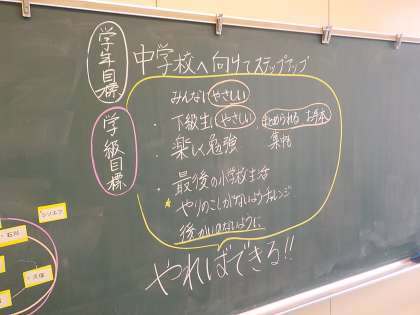 学年目標
中学校へ向けてステップアップ
学級目標
・みんなにやさしい
・下級生にやさしい、 められる お手本
・楽しく勉強 集中も
・最後の小学校生活
★やりのこしがないようチャレンジ
後かいのないように
やればできる!!